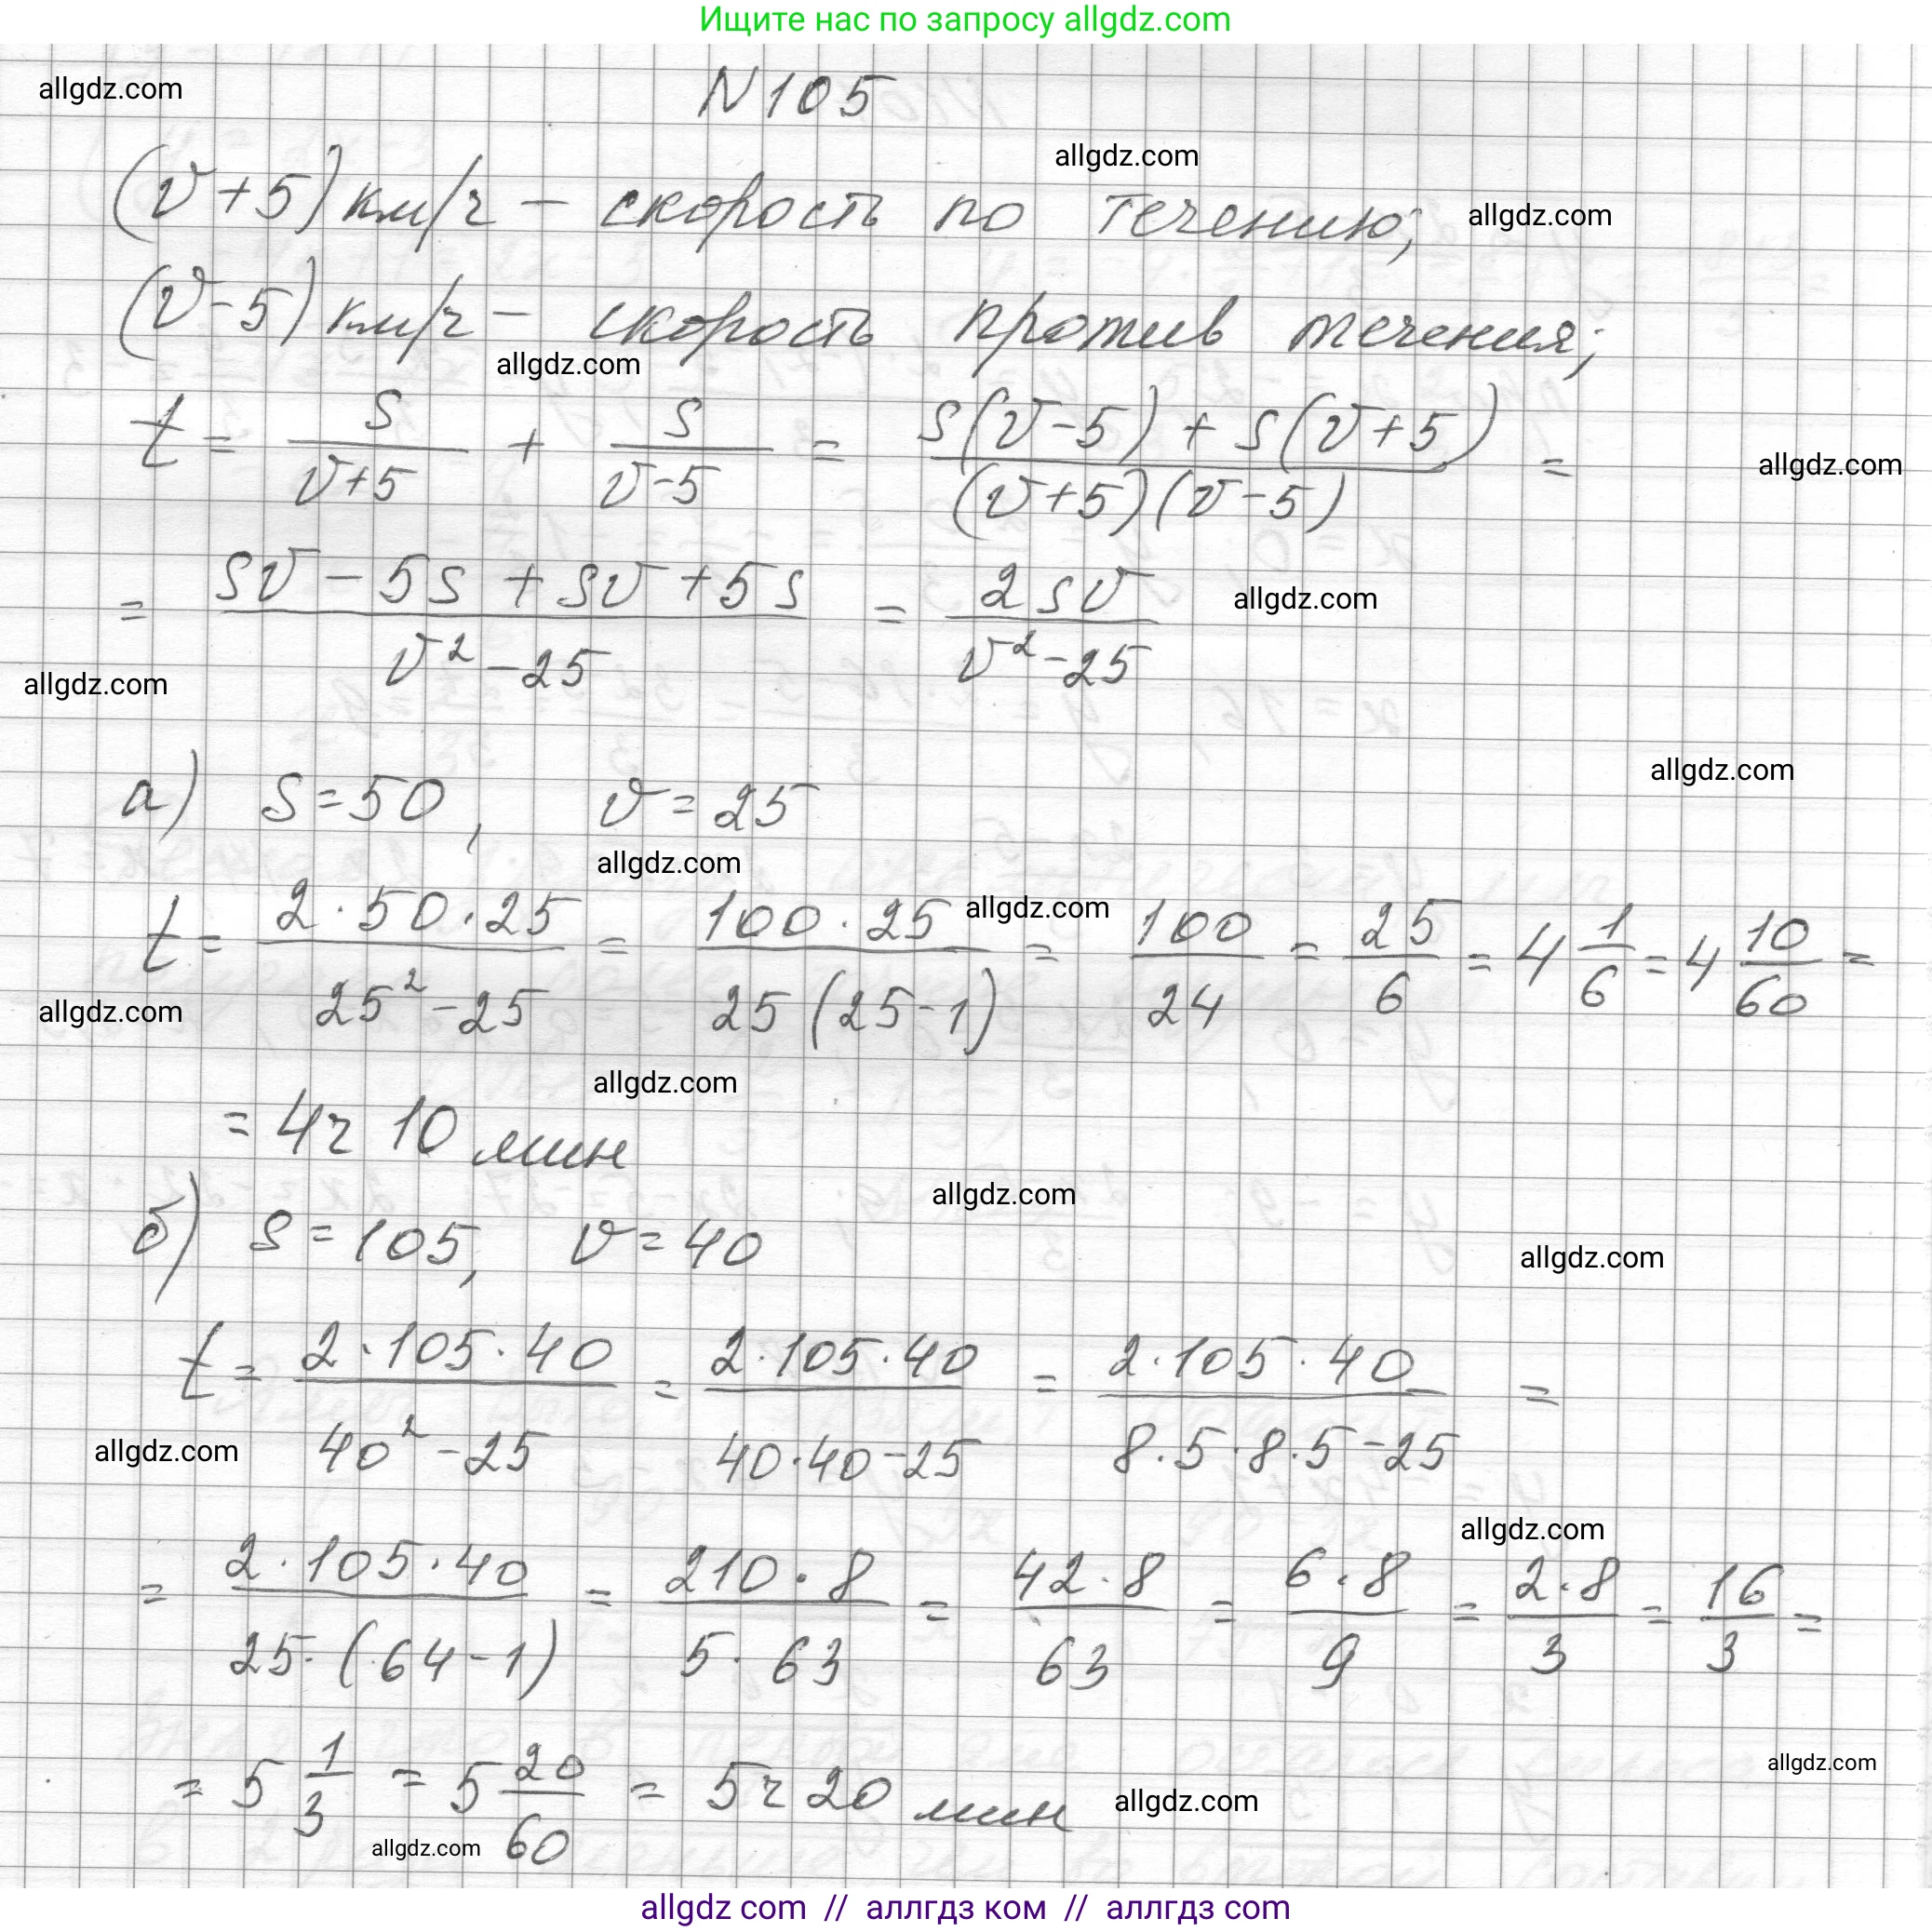 Ищите нас по запросу allgdz.com
allgdz.com
N105
allgdz.com
(v+5) км/ч – скорость по течению;
allgdz.com
(v-5) км/ч – скорость против течения;
allgdz.com
t = s/(v+5) + s/(v-5) = (s(v-5) + s(v+5))/((v+5)(v-5)) =
allgdz.com
= (sv - 5s + sv + 5s)/(v² - 25) = 2sv/(v² - 25)
allgdz.com
allgdz.com
allgdz.com
а) s = 50, v = 25
allgdz.com
allgdz.com
t = (2·50·25)/(25² - 25) = (100·25)/(25(25-1)) = 100/24 = 25/6 = 4 1/6 = 4 10/60 =
allgdz.com
allgdz.com
= 4ч 10 мин
allgdz.com
б) s = 105, v = 40
allgdz.com
t = (2·105·40)/(40² - 25) = (2·105·40)/(40·40 - 25) = (2·105·40)/(8·5·8·5 - 25) =
allgdz.com
allgdz.com
= (2·105·40)/(25·(64-1)) = (210·8)/(5·63) = (42·8)/63 = (6·8)/9 = (2·8)/3 = 16/3 =
allgdz.com
= 5 1/3 = 5 20/60 = 5ч 20 мин
allgdz.com
allgdz.com
allgdz com // аллгдз ком // аллгдз com